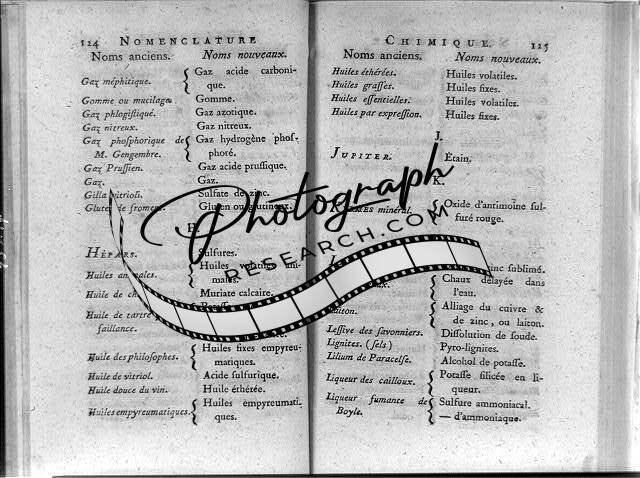 124 NOMENCLATURE
Noms anciens. Noms nouveaux.
Gaz méphitique. { Gaz acide carboni-
que.
Gomme ou mucilage. Gomme.
Gaz phlogistiqué. Gaz azotique.
Gaz nitreux. Gaz nitreux.
Gaz phosphorique de { Gaz hydrogène phos-
M. Gengembre. phoré.
Gaz Prussien. Gaz acide prussique.
Gaz. Gaz.
Gilla vitrioli. Sulfate de zinc.
Gluten de froment. Gluten ou glutineux.
H
HÉPARS. Sulfures.
Huiles animales. { Huiles volatiles ani-
males.
Huile de Muriate calcaire.
Huile de tartre
faillance.
Huile des philosophes. { Huiles fixes empyreu-
matiques.
Huile de vitriol. Acide sulfurique.
Huile douce du vin. Huile éthérée.
Huiles empyreumatiques. { Huiles empyreumati-
ques.
CHIMIQUE. 125
Noms anciens. Noms nouveaux.
Huiles éthérées. Huiles volatiles.
Huiles grasses. Huiles fixes.
Huiles essentielles. Huiles volatiles.
Huiles par expression. Huiles fixes.
J.
JUPITER. Étain.
K.
minéral. { Oxide d'antimoine sul-
furé rouge.
zinc sublimé.
{ Chaux délayée dans
l'eau.
Laiton. { Alliage du cuivre &
de zinc, ou laiton.
Lessive des savonniers. Dissolution de soude.
Lignites. (sels) Pyro-lignites.
Lilium de Paracelse. Alcohol de potasse.
Liqueur des cailloux. { Potasse silicée en li-
queur.
Liqueur fumante de { Sulfure ammoniacal.
Boyle. — d'ammoniaque.
Photograph
RESEARCH.COM